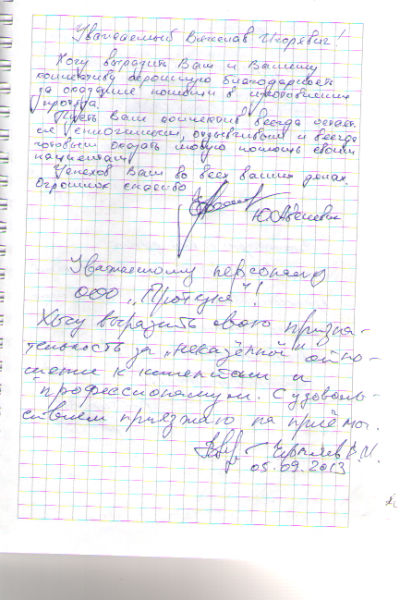 Уважаемый Вячеслав Игоревич!
Хочу выразить Вам и Вашему
коллективу огромную благодарность
за оказание помощи в изготовлении
протеза.
Пусть Ваш коллектив всегда остает-
ся и всегда
готовым оказать любую помощь своим
пациентам
Успехов Вам во всех ваших делах.
Огромное спасибо
Уважаемому персоналу
ООО „Проткуня"!
Хочу выразить свою призна-
тельность за „неказённое" отно-
шение к клиентам и
профессионализм. С удоволь-
ствием приезжаю на приёмы.
05.09.2013